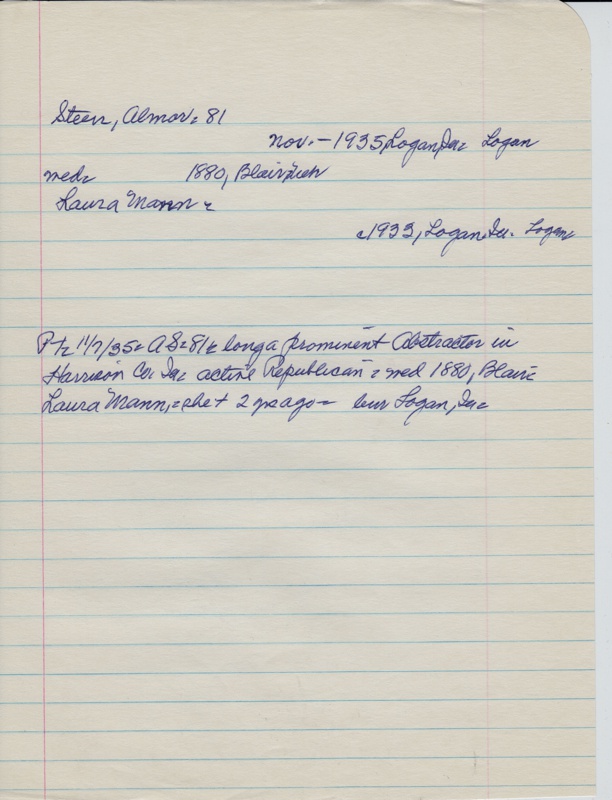 Steen, Almor = 81
Nov. - 1935, Logan, Ia = Logan
wed = 1880, Blair, Neb
Laura Mann =
c1933, Logan, Ia. Logan
Pt = 11/7/35 = AS = 81 = long a prominent Abstractor in
Harrison Co. Ia = active Republican = wed 1880, Blair =
Laura Mann, = she + 2 yrs ago = bur Logan, Ia =